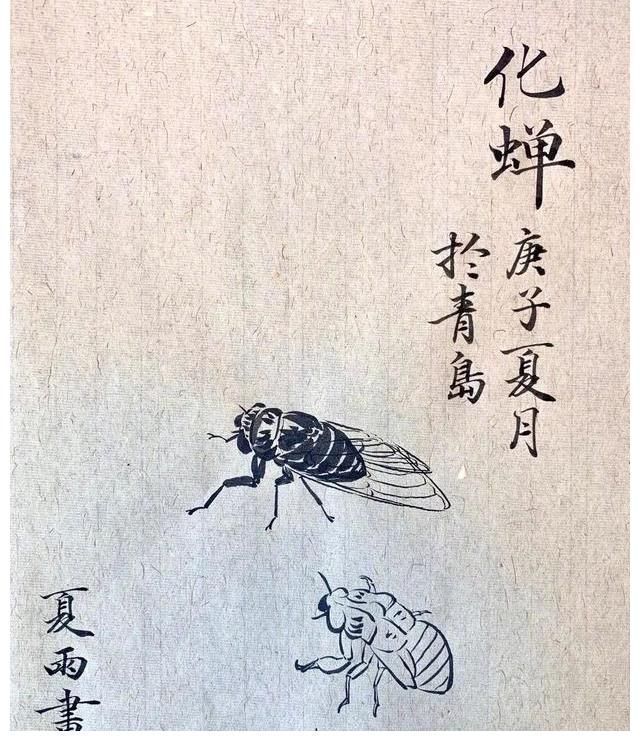 化蝉
庚子夏月
於青島
夏雨畫